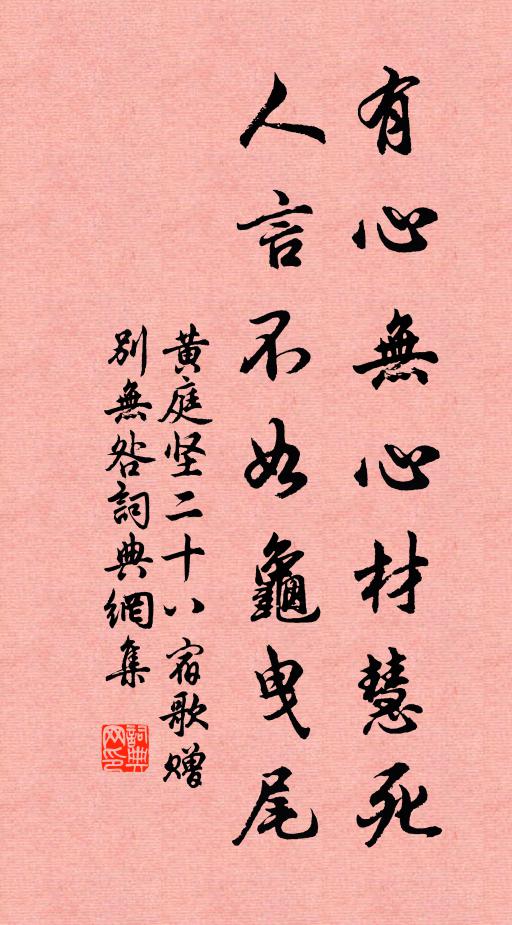 有心無心材慧死
人言不如龜曳尾
黃庭坚二十八宿歌赠
别無咎詞典網集
詞典网印